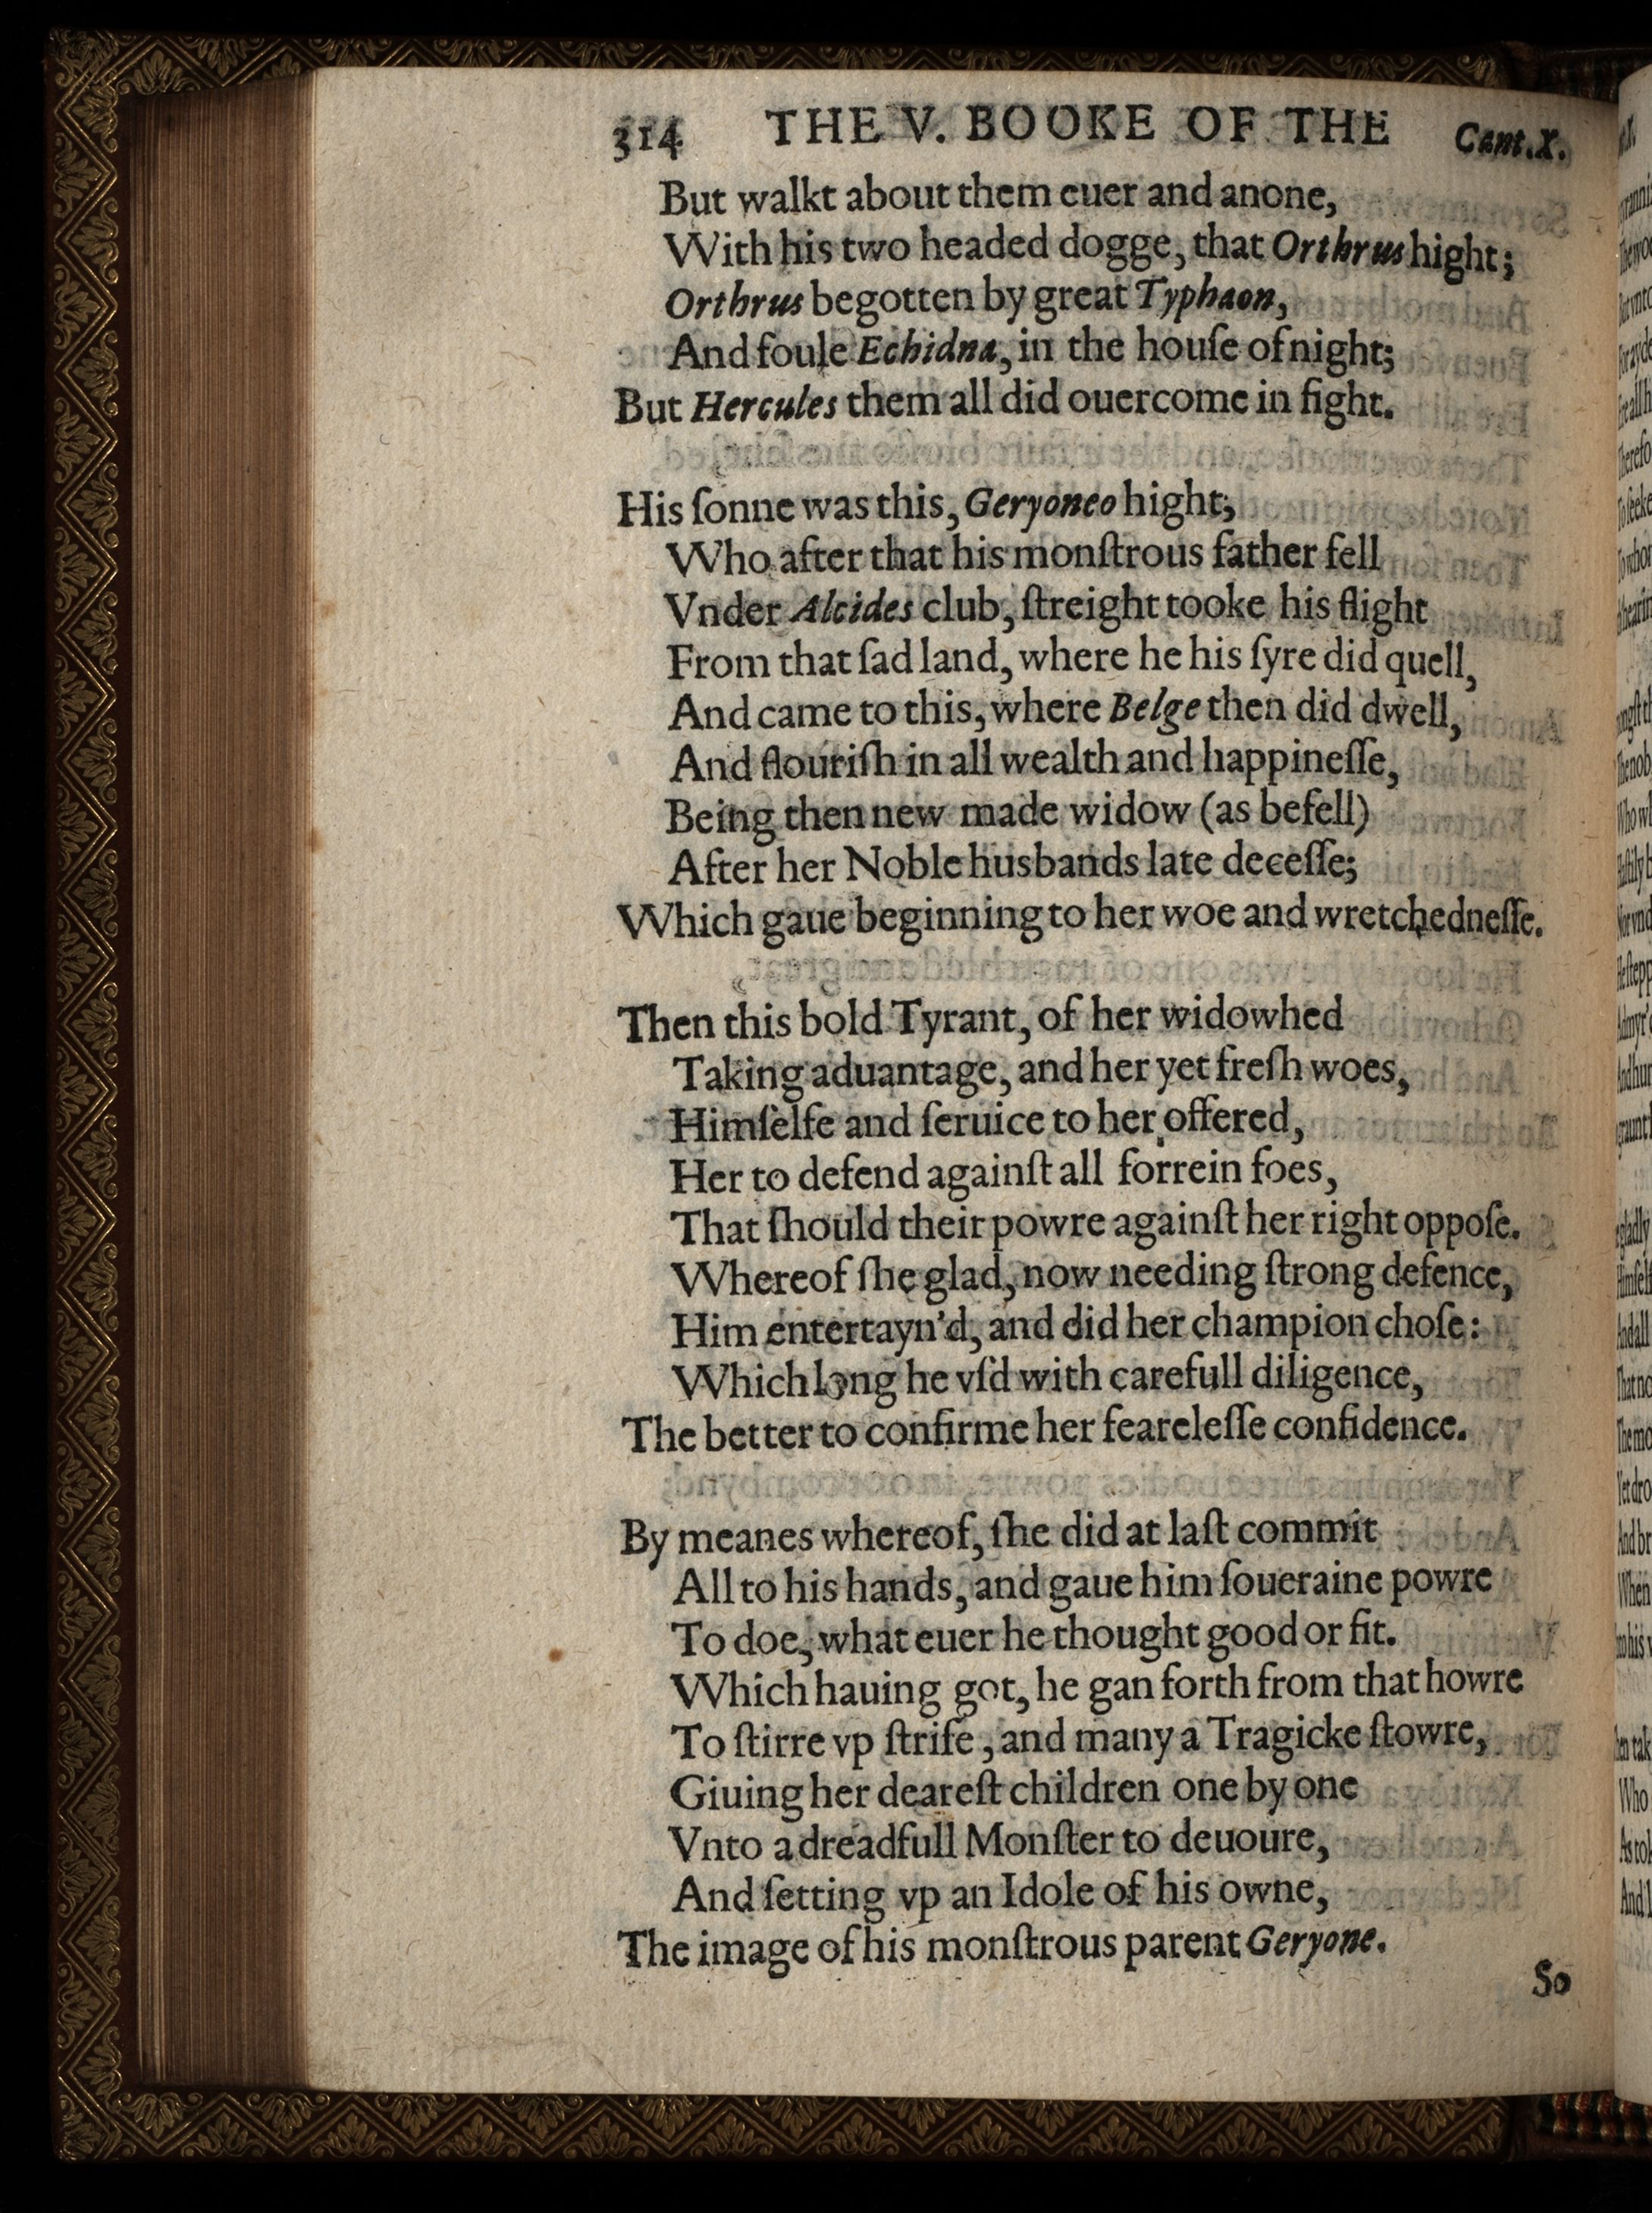 314 THE V. BOOKE OF THE Cant.X.
But walkt about them euer and anone,
With his two headed dogge, that Orthrus hight;
Orthrus begotten by great Typhaon,
And foule Echidna, in the houſe of night;
But Hercules them all did ouercome in fight.
His ſonne was this, Geryoneo hight;
Who after that his monſtrous father fell
Vnder Alcides club, ſtreight tooke his flight
From that ſad land, where he his ſyre did quell,
And came to this, where Belge then did dwell,
And flouriſh in all wealth and happineſſe,
Being then new made widow (as befell)
After her Noble husbands late deceſſe;
Which gaue beginning to her woe and wretchedneſſe.
Then this bold Tyrant, of her widowhed
Taking aduantage, and her yet freſh woes,
Himſelfe and ſeruice to her offered,
Her to defend againſt all forrein foes,
That ſhould their powre againſt her right oppoſe.
Whereof ſhe glad, now needing ſtrong defence,
Him entertayn'd, and did her champion choſe:
Which long he vſ'd with carefull diligence,
The better to confirme her feareleſſe confidence.
By meanes whereof, ſhe did at laſt commit
All to his hands, and gaue him ſoueraine powre
To doe, what euer he thought good or fit.
Which hauing got, he gan forth from that howre
To ſtirre vp ſtrife, and many a Tragicke ſtowre,
Giuing her deareſt children one by one
Vnto a dreadfull Monſter to deuoure,
And ſetting vp an Idole of his owne,
The image of his monſtrous parent Geryone.
So